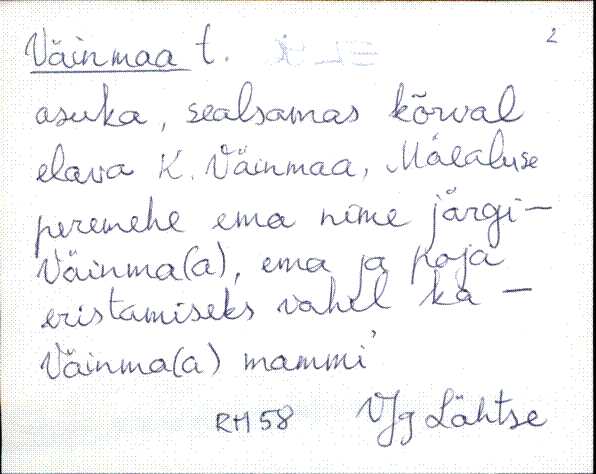 Väinmaa t. 2
asuka, sealsamas kõrval
elava K. Väinmaa, Mäealuse
peremehe ema nime järgi -
Väinma(a), ema ja poja
eristamiseks vahel ka -
Väinma(a) mammi'
RH 58 VJg Lähtse